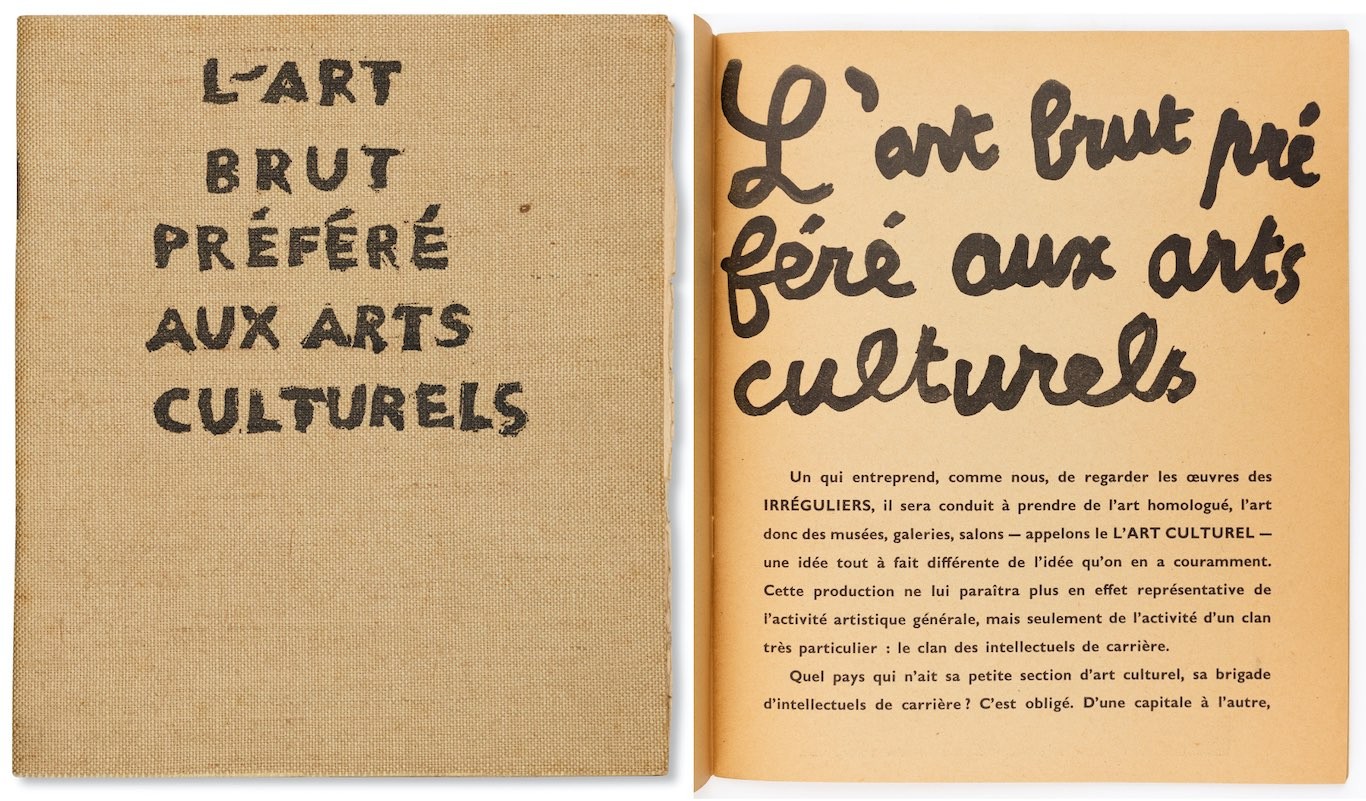 L'ART
BRUT
PRÉFÉRÉ
AUX ARTS
CULTURELS
L'art brut pré
féré aux arts
culturels
Un qui entreprend, comme nous, de regarder les œuvres des
IRRÉGULIERS, il sera conduit à prendre de l'art homologué, l'art
donc des musées, galeries, salons — appelons le L'ART CULTUREL —
une idée tout à fait différente de l'idée qu'on en a couramment.
Cette production ne lui paraîtra plus en effet représentative de
l'activité artistique générale, mais seulement de l'activité d'un clan
très particulier : le clan des intellectuels de carrière.
Quel pays qui n'ait sa petite section d'art culturel, sa brigade
d'intellectuels de carrière ? C'est obligé. D'une capitale à l'autre,